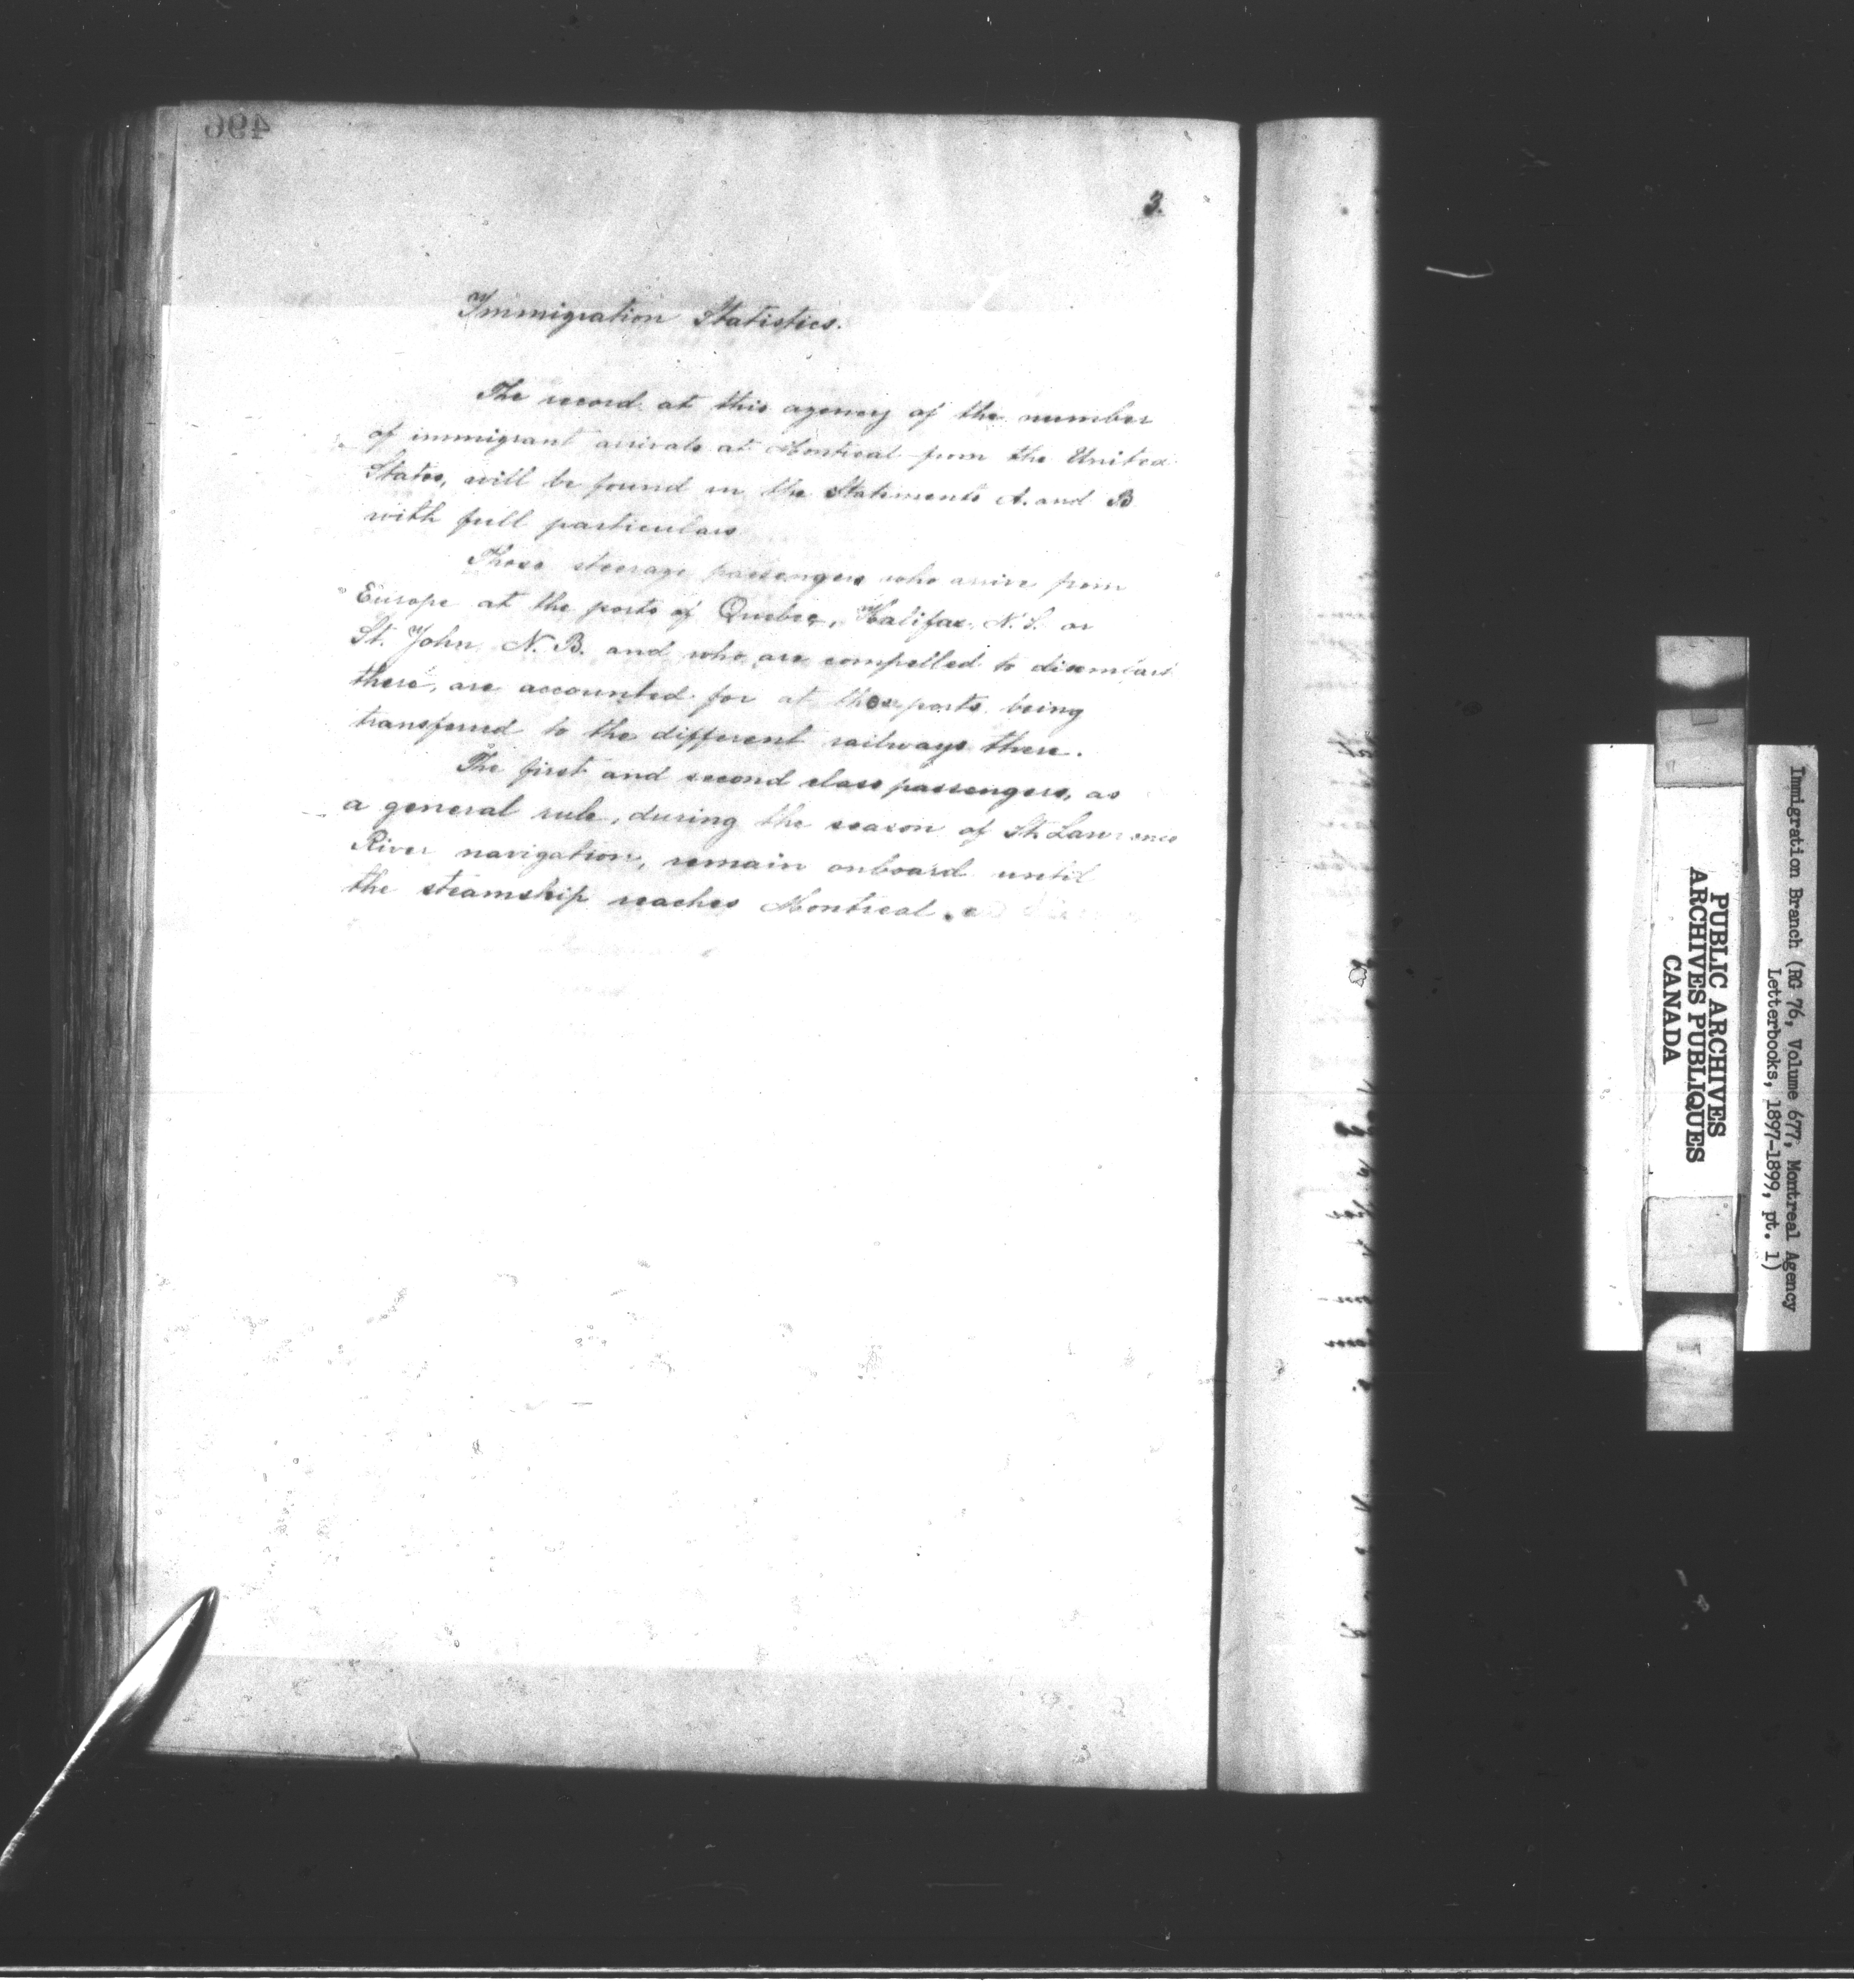 496
3.
Immigration Statistics.
The record at this agency of the number
of immigrant arrivals at Montreal from the United
States, will be found in the Statements A. and B
with full particulars
Those steerage passengers who arrive from
Europe at the ports of Quebec, Halifax, N.S. or
St. John, N.B. and who are compelled to disembark
there, are accounted for at those ports being
transferred to the different railways there.
The first and second class passengers, as
a general rule, during the season of St. Lawrence
River navigation, remain onboard until
the steamship reaches Montreal.
Immigration Branch (RG 76, Volume 677, Montreal Agency
Letterbooks, 1897-1899, pt. 1)
PUBLIC ARCHIVES
ARCHIVES PUBLIQUES
CANADA